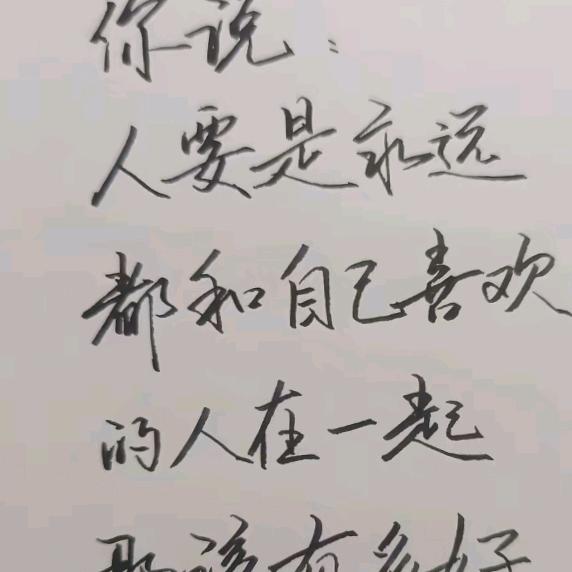 你说：
人要是永远
都和自己喜欢
的人在一起
那该有多好